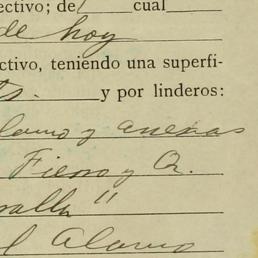 ectivo; de cual
de hoy
ctivo, teniendo una superfi-
y por linderos:
Alamo y arenas
Fierro y
"
l Alamo